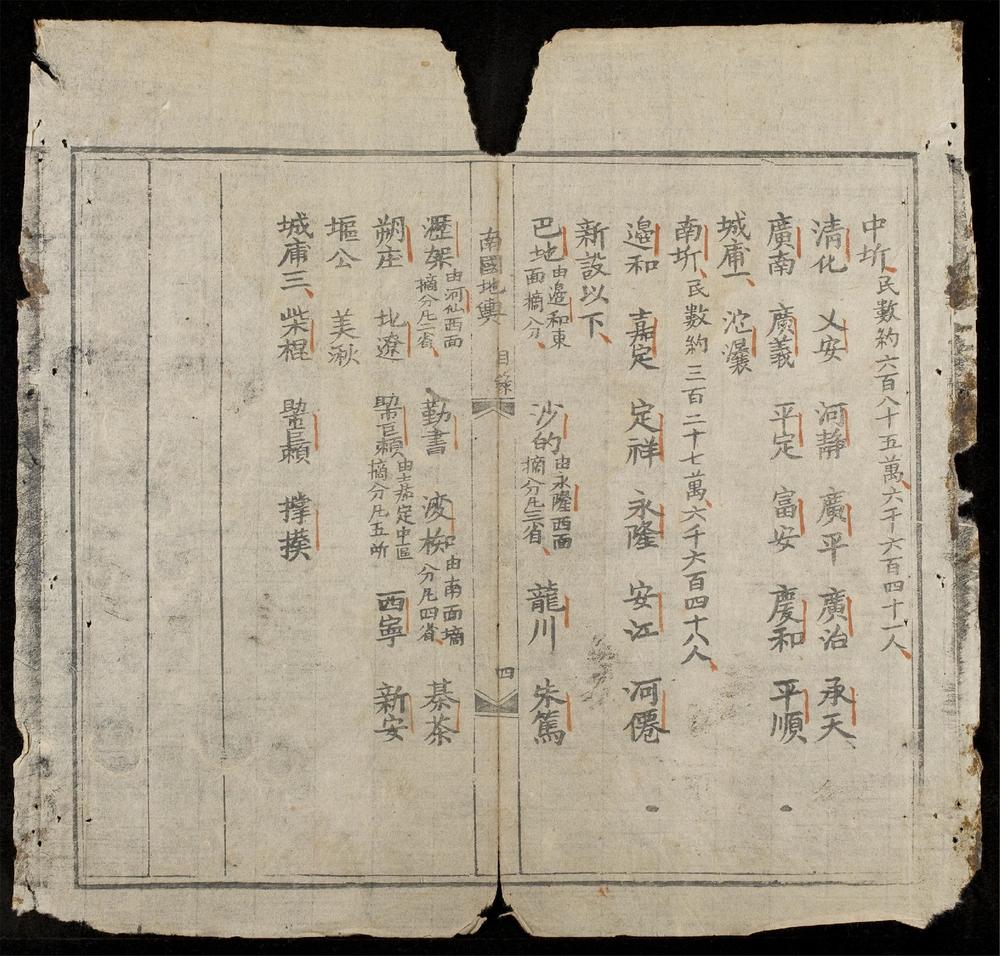 中圻民數約六百八十五萬六千六百四十一人
清化 乂安 河静 廣平 廣治 承天
廣南 廣義 平定 富安 慶和 平順
城庯一 沱㶞
南圻民數約三百二十七萬六千六百四十八人
邉和 嘉定 定祥 永隆 安江 河僊
新設以下
巴地由邉和東面摘分 沙的由永隆西面摘分凡三省 龍川 朱篤
南國地輿 目錄 四
瀝架由河仙西面摘分凡二省 勤書 浚柳由南面摘分凡四省 綦茶
朔庄 北遼 由嘉定中區摘分凡五所 西寧 新安
塸公 美湫
城庯三 柴棍 撑揍